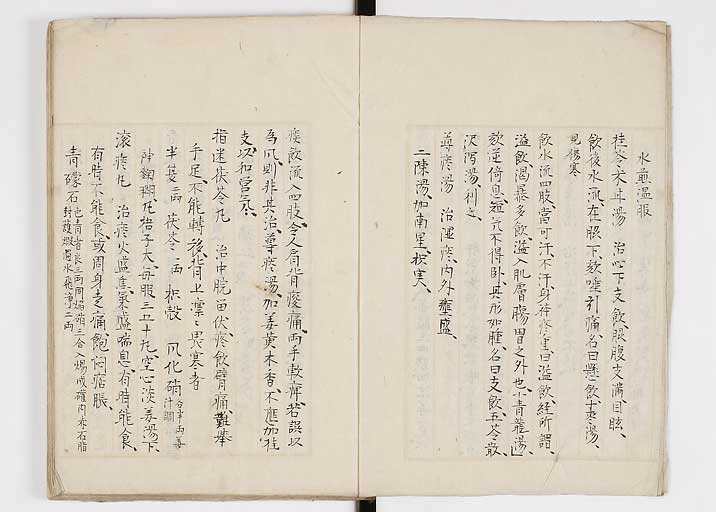 水煎溫服
桂苓朮甘湯 治心下支飲、服腹支滿、目眩、
飲後水流在脇下、欬唾引痛、名曰懸飲、十棗湯、
見傷寒
飲水流四肢、當可汗、不汗、身疼重、曰溢飲、經所謂
溢飲渴暴多飲、溢入肌膚腸胃之外也、小青龍湯、
欬逆倚息、短気不得臥、其形如腫、名曰支飲、五苓散、
沢瀉湯、利之、
導痰湯 治運痰、内外壅盛、
二陳湯、加南星、枳実、
痰飲流入四肢、令人肩背痠痛、両手軟痺、若誤以
為風、則非其治、導痰湯、加姜黄木香、不應加桂
支、以和営気、
指迷茯苓丸 治中脘留伏痰飲、臂痛、難挙
手足不能轉後、背上凛々畏寒者
半夏二両 茯苓一両 枳殻 風化硝
神麹糊丸、梧子大、毎服三五十丸、空心淡姜湯下、
滚痰丸 治痰火盛、気盛喘息、有時能食、
有時不能食、或周身走痛、飽悶痞脹、
青礞石